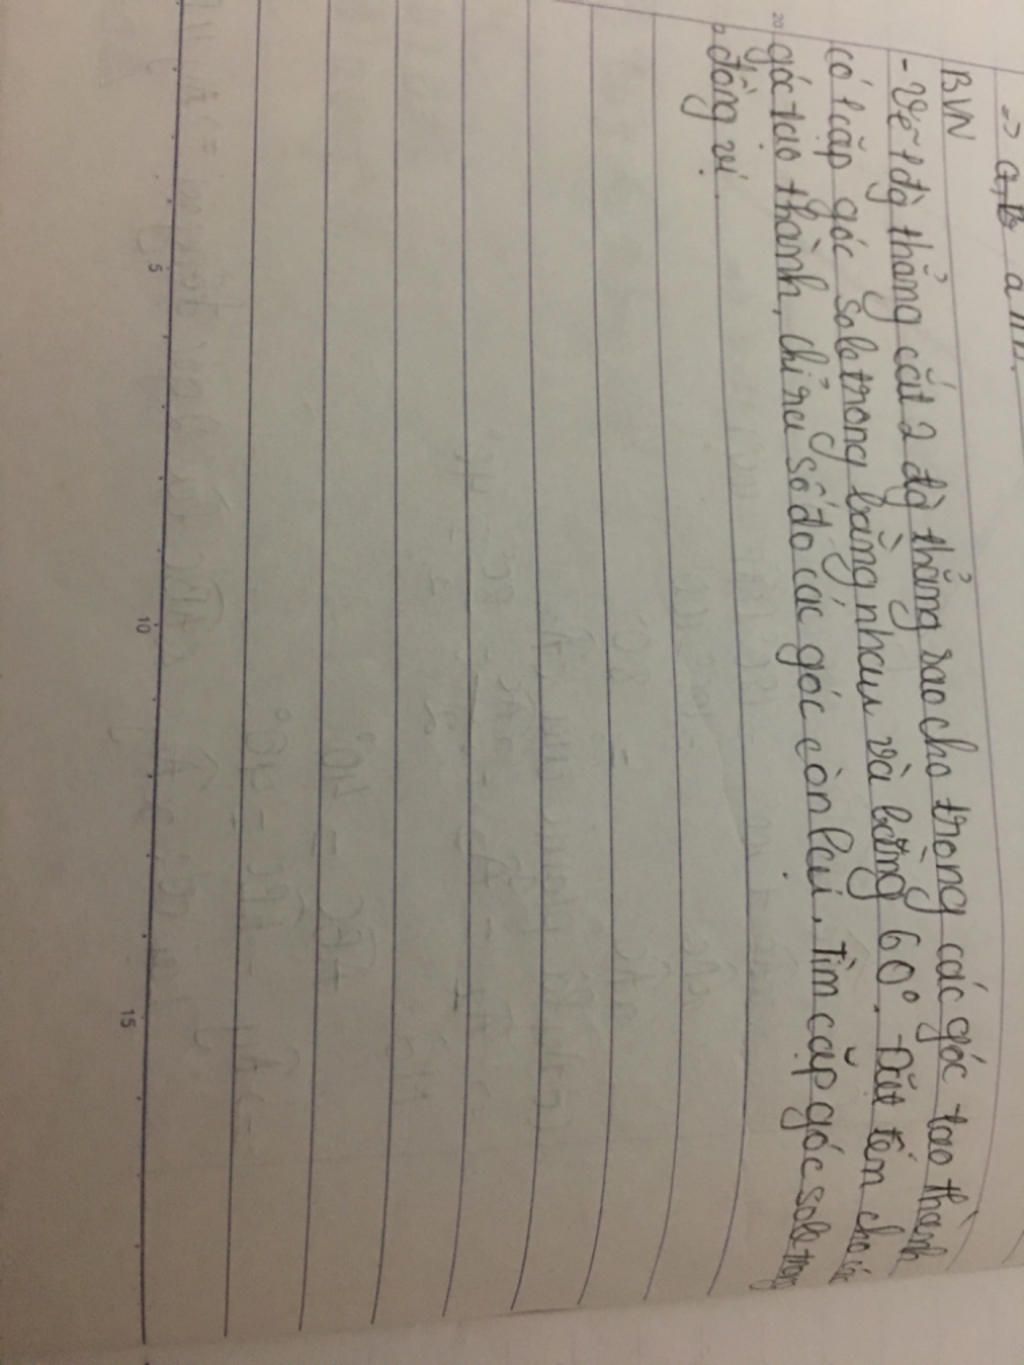 -> a, b a //
BVN
- Vẽ 1 đg thẳng cắt 2 đg thẳng sao cho trong các góc tạo thành
có 1 cặp góc sole trong bằng nhau và bằng 60°. Đặt tên cho các
góc tạo thành, chỉ ra số đo các góc còn lại. Tìm cặp góc sole trong
đồng vị.
20
5
10
15